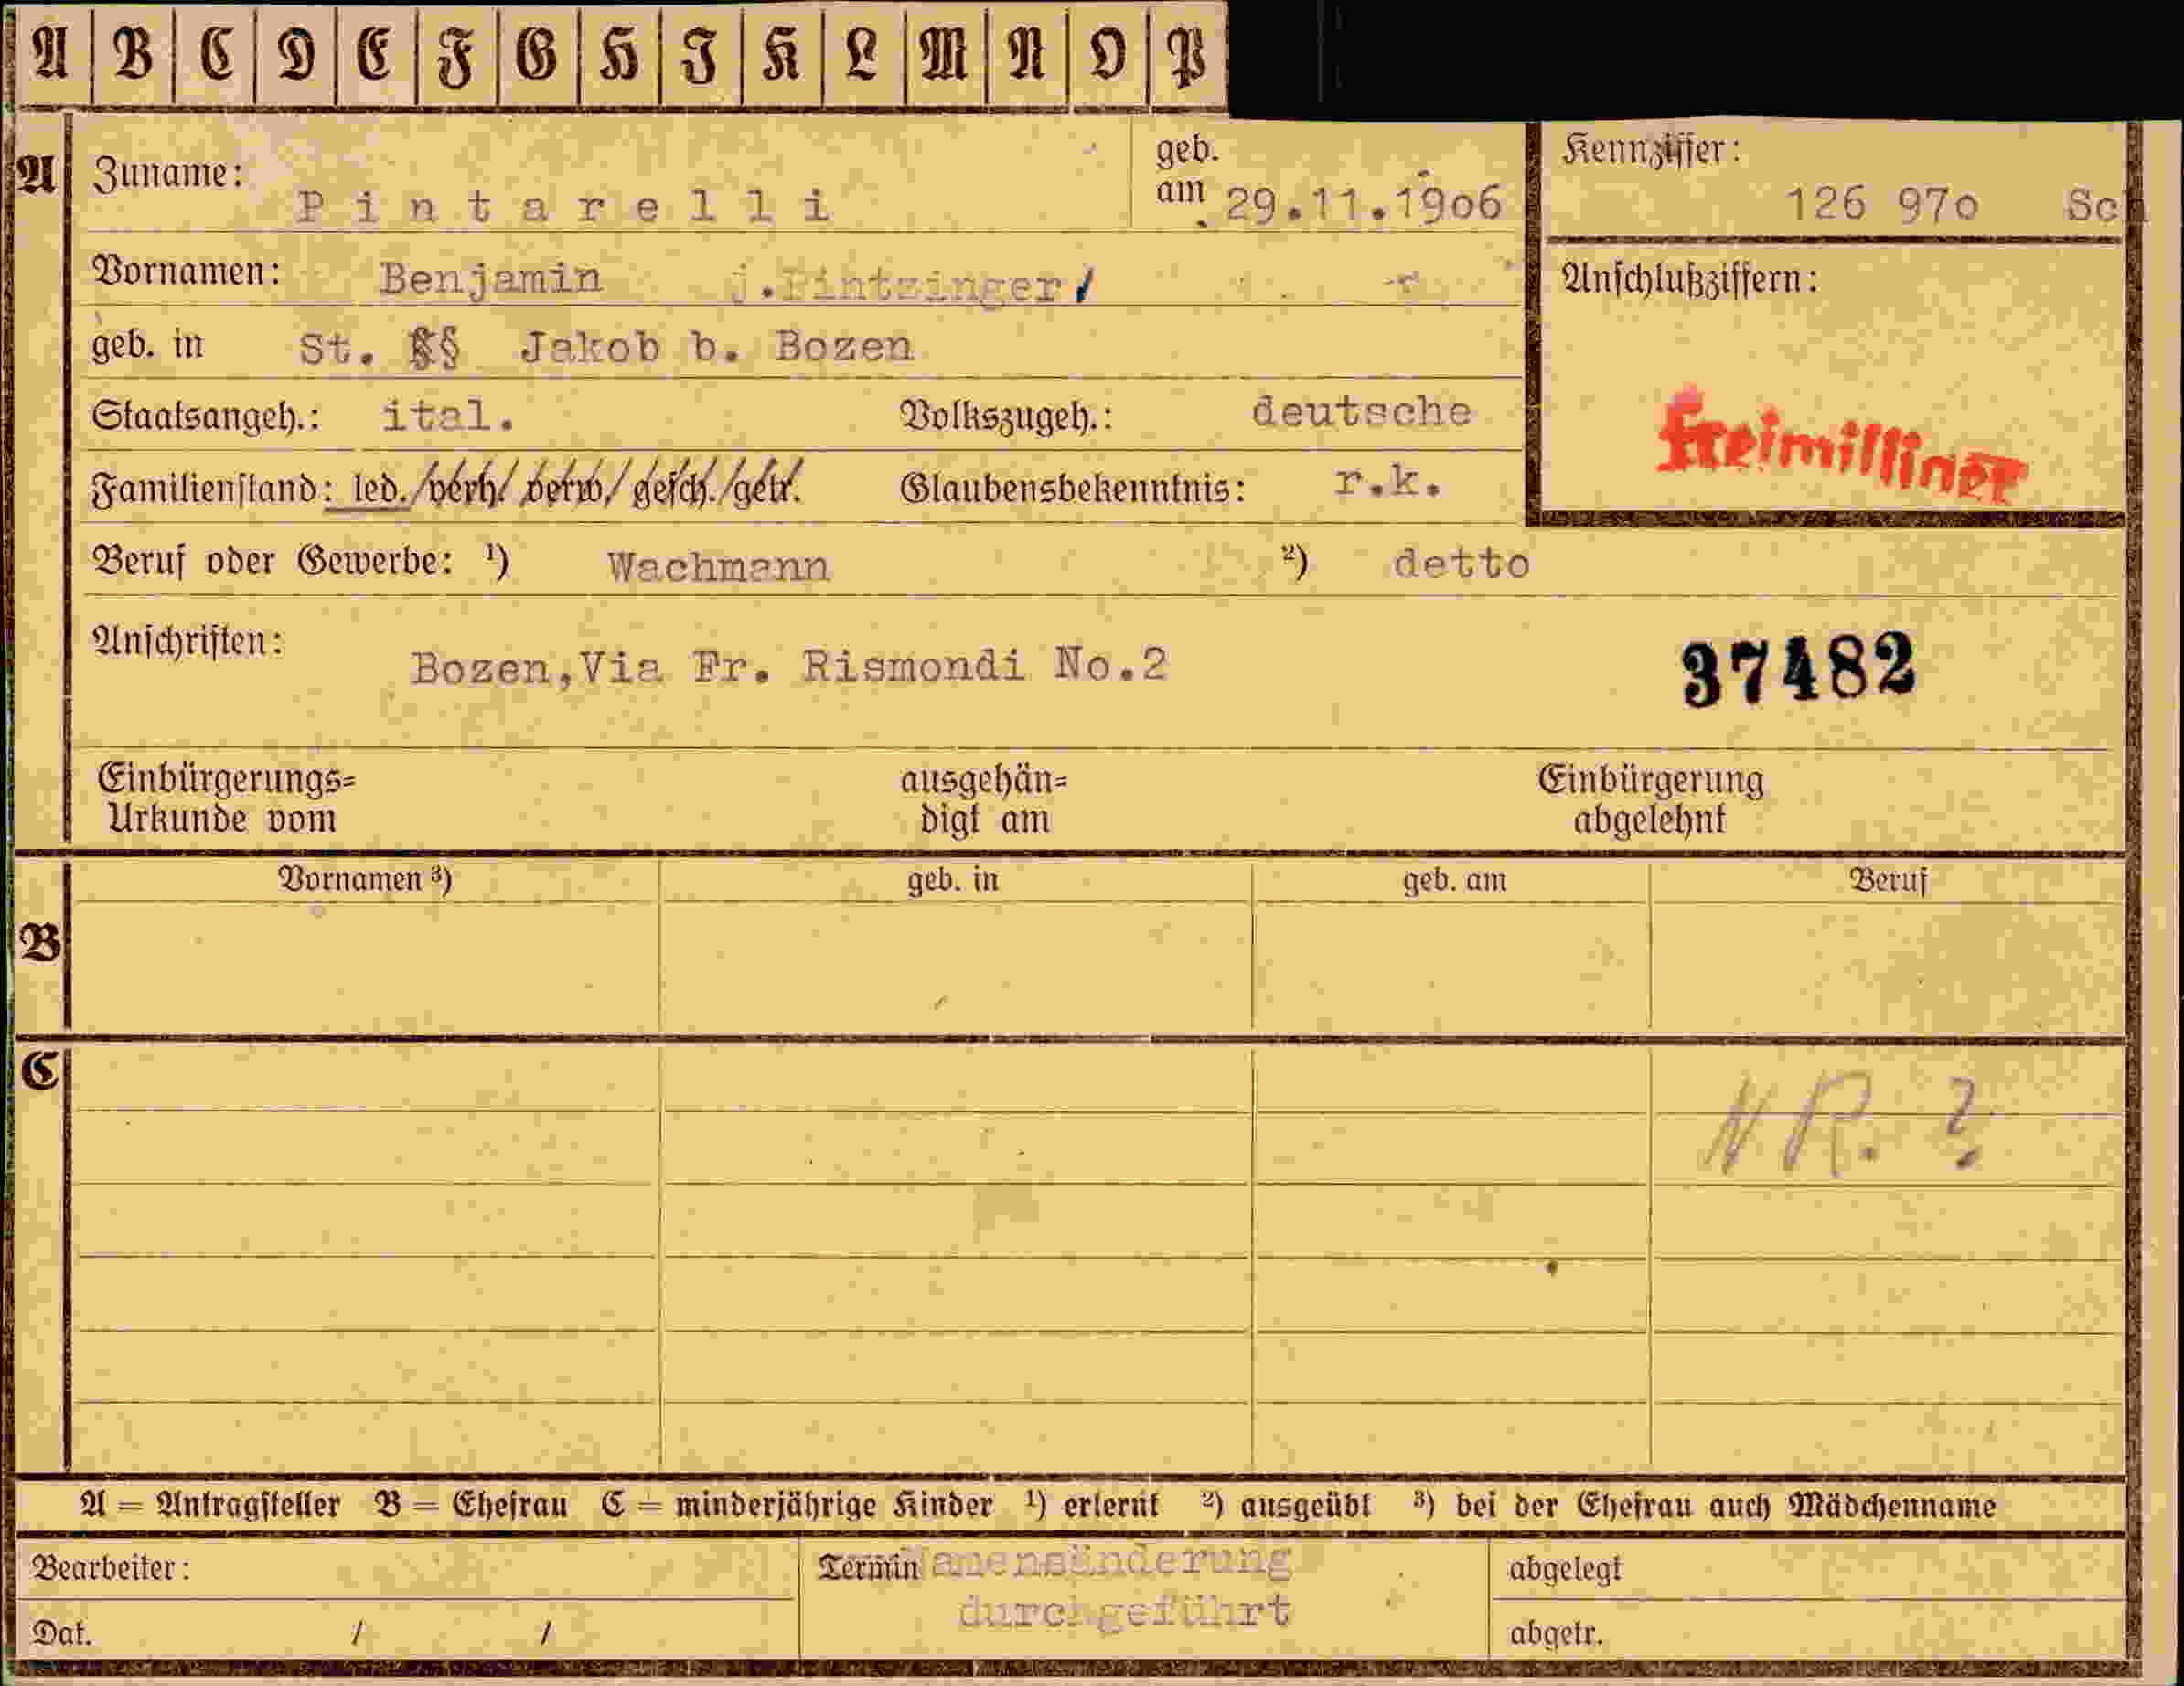 A B C D E F G H I K L M N O P
A
Zuname: Pintarelli geb. am 29.11.19o6
Kennziffer: 126 97o Sch
Vornamen: Benjamin j.Pintzinger/
Anschlußziffern:
geb. in St. §§ Jakob b. Bozen
Staatsangeh.: ital. Volkszugeh.: deutsche
Familienstand: led./verh./verw./gesch./getr. Glaubensbekenntnis: r.k.
Beruf oder Gewerbe: ¹) Wachmann ²) detto
Anschriften: Bozen,Via Fr. Rismondi No.2
37482
Einbürgerungs= ausgehän= Einbürgerung
Urkunde vom digt am abgelehnt
Vornamen ³) geb. in geb. am Beruf
B
C
NR. ?
A = Antragsteller B = Ehefrau C = minderjährige Kinder ¹) erlernt ²) ausgeübt ³) bei der Ehefrau auch Mädchenname
Bearbeiter: Termin Namensänderung abgelegt
durchgeführt
Dat. / / abgetr.